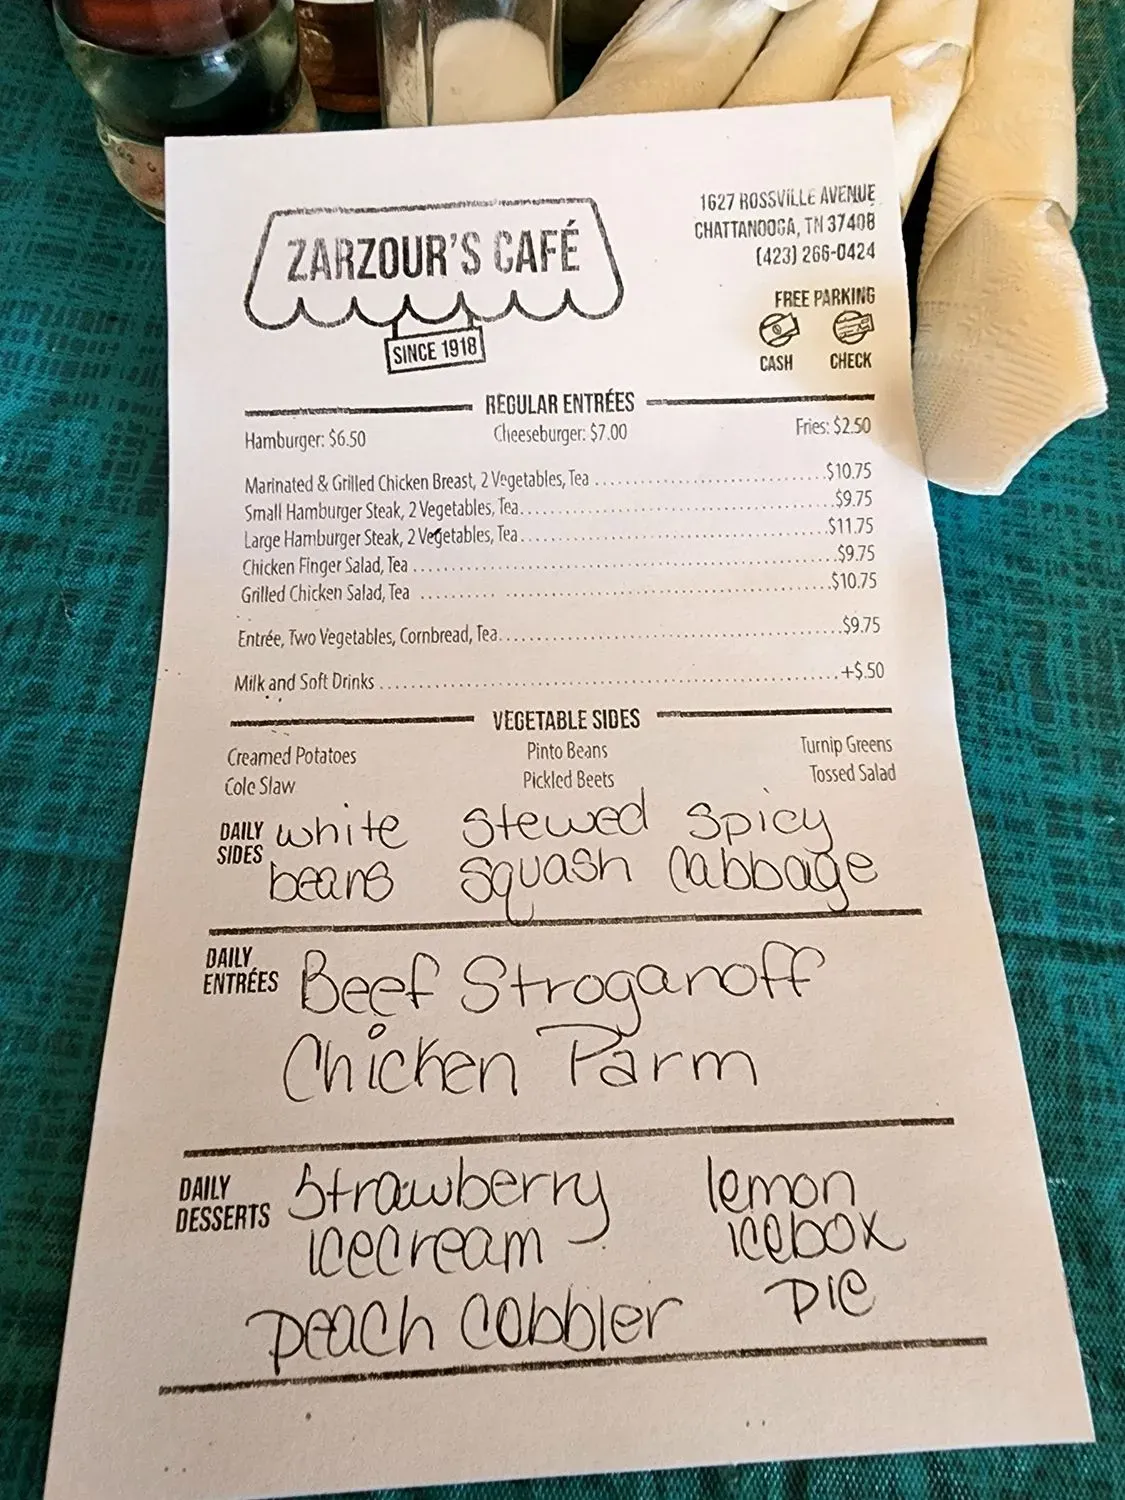 ZARZOUR'S CAFÉ
SINCE 1918
1627 ROSSVILLE AVENUE
CHATTANOOGA, TN 37408
(423) 266-0424
FREE PARKING
CASH CHECK
REGULAR ENTRÉES
Hamburger: $6.50 Cheeseburger: $7.00 Fries: $2.50
Marinated & Grilled Chicken Breast, 2 Vegetables, Tea $10.75
Small Hamburger Steak, 2 Vegetables, Tea $9.75
Large Hamburger Steak, 2 Vegetables, Tea $11.75
Chicken Finger Salad, Tea $9.75
Grilled Chicken Salad, Tea $10.75
Entrée, Two Vegetables, Cornbread, Tea $9.75
Milk and Soft Drinks +$.50
VEGETABLE SIDES
Creamed Potatoes Pinto Beans Turnip Greens
Cole Slaw Pickled Beets Tossed Salad
DAILY SIDES
white stewed spicy
beans squash cabbage
DAILY ENTRÉES
Beef Stroganoff
Chicken Parm
DAILY DESSERTS
Strawberry lemon
icecream icebox
peach cobbler pie